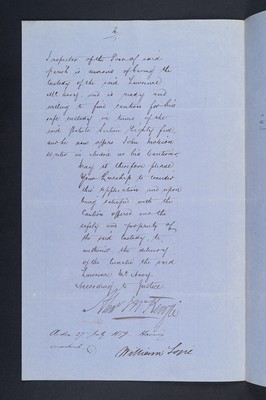 2
Inspector of the Poor of said
parish is desirous of having the
custody of the said Lawrence
McAvoy and is ready and
willing to find caution for his
safe custody in terms of the
said Statute Section Eighty five,
and he now offers John
writer in as his Cautioner
May it therefore please
Your Lordship to consider
this Application and upon
being satisfied with the
Caution offered and the
safety and propriety of
the said custody, to
authorise the delivery
of the Lunatic the said
Lawrence McAvoy.
According to Justice
July 1859
William